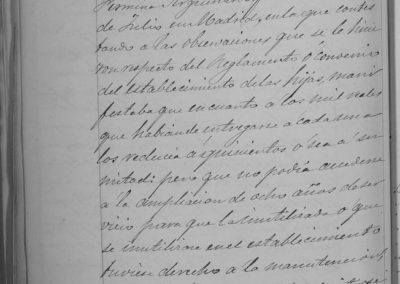 de Julio en Madrid, en la que contes
tando a las observaciones que se le hicie
ron respecto del Reglamento ó Convenio
del establecimiento de las hijas, mani
festaba que en cuanto a los mil reales
que habian de entregarse a cada una
los reducia a quinientos ó sea a su
mitad: pero que no podia acceder
a la ampliacion de ocho años de ser
vicio para que la inutilizada o que
se inutilice en el establecimiento
tuviese derecho a la manutencion